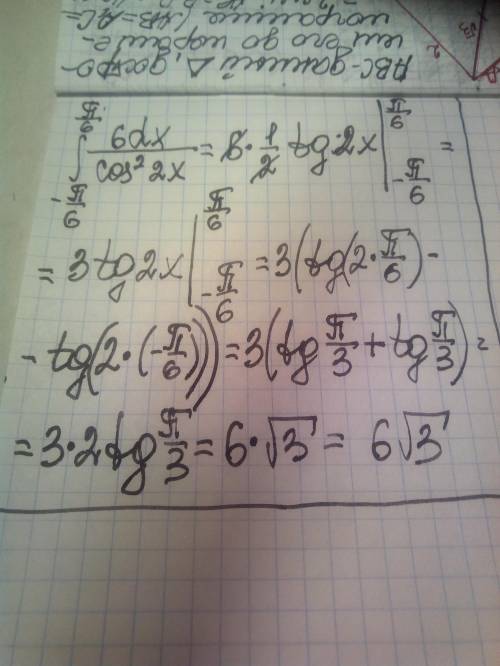 ABC-данный Δ, достро-
им его до паралле-
лограмма (AB=AC=
2
√3
∫_{-π/6}^{π/6} 6dx/cos² 2x = 6·1/2 tg 2x |_{-π/6}^{π/6} =
= 3 tg 2x |_{-π/6}^{π/6} = 3(tg(2·π/6) -
- tg(2·(-π/6))) = 3(tg π/3 + tg π/3) =
= 3·2 tg π/3 = 6·√3 = 6√3